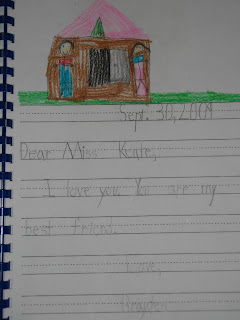 Sept. 30, 2009
Dear Miss Keate,
I love you. You are my
best friend.
Love,
Brayden